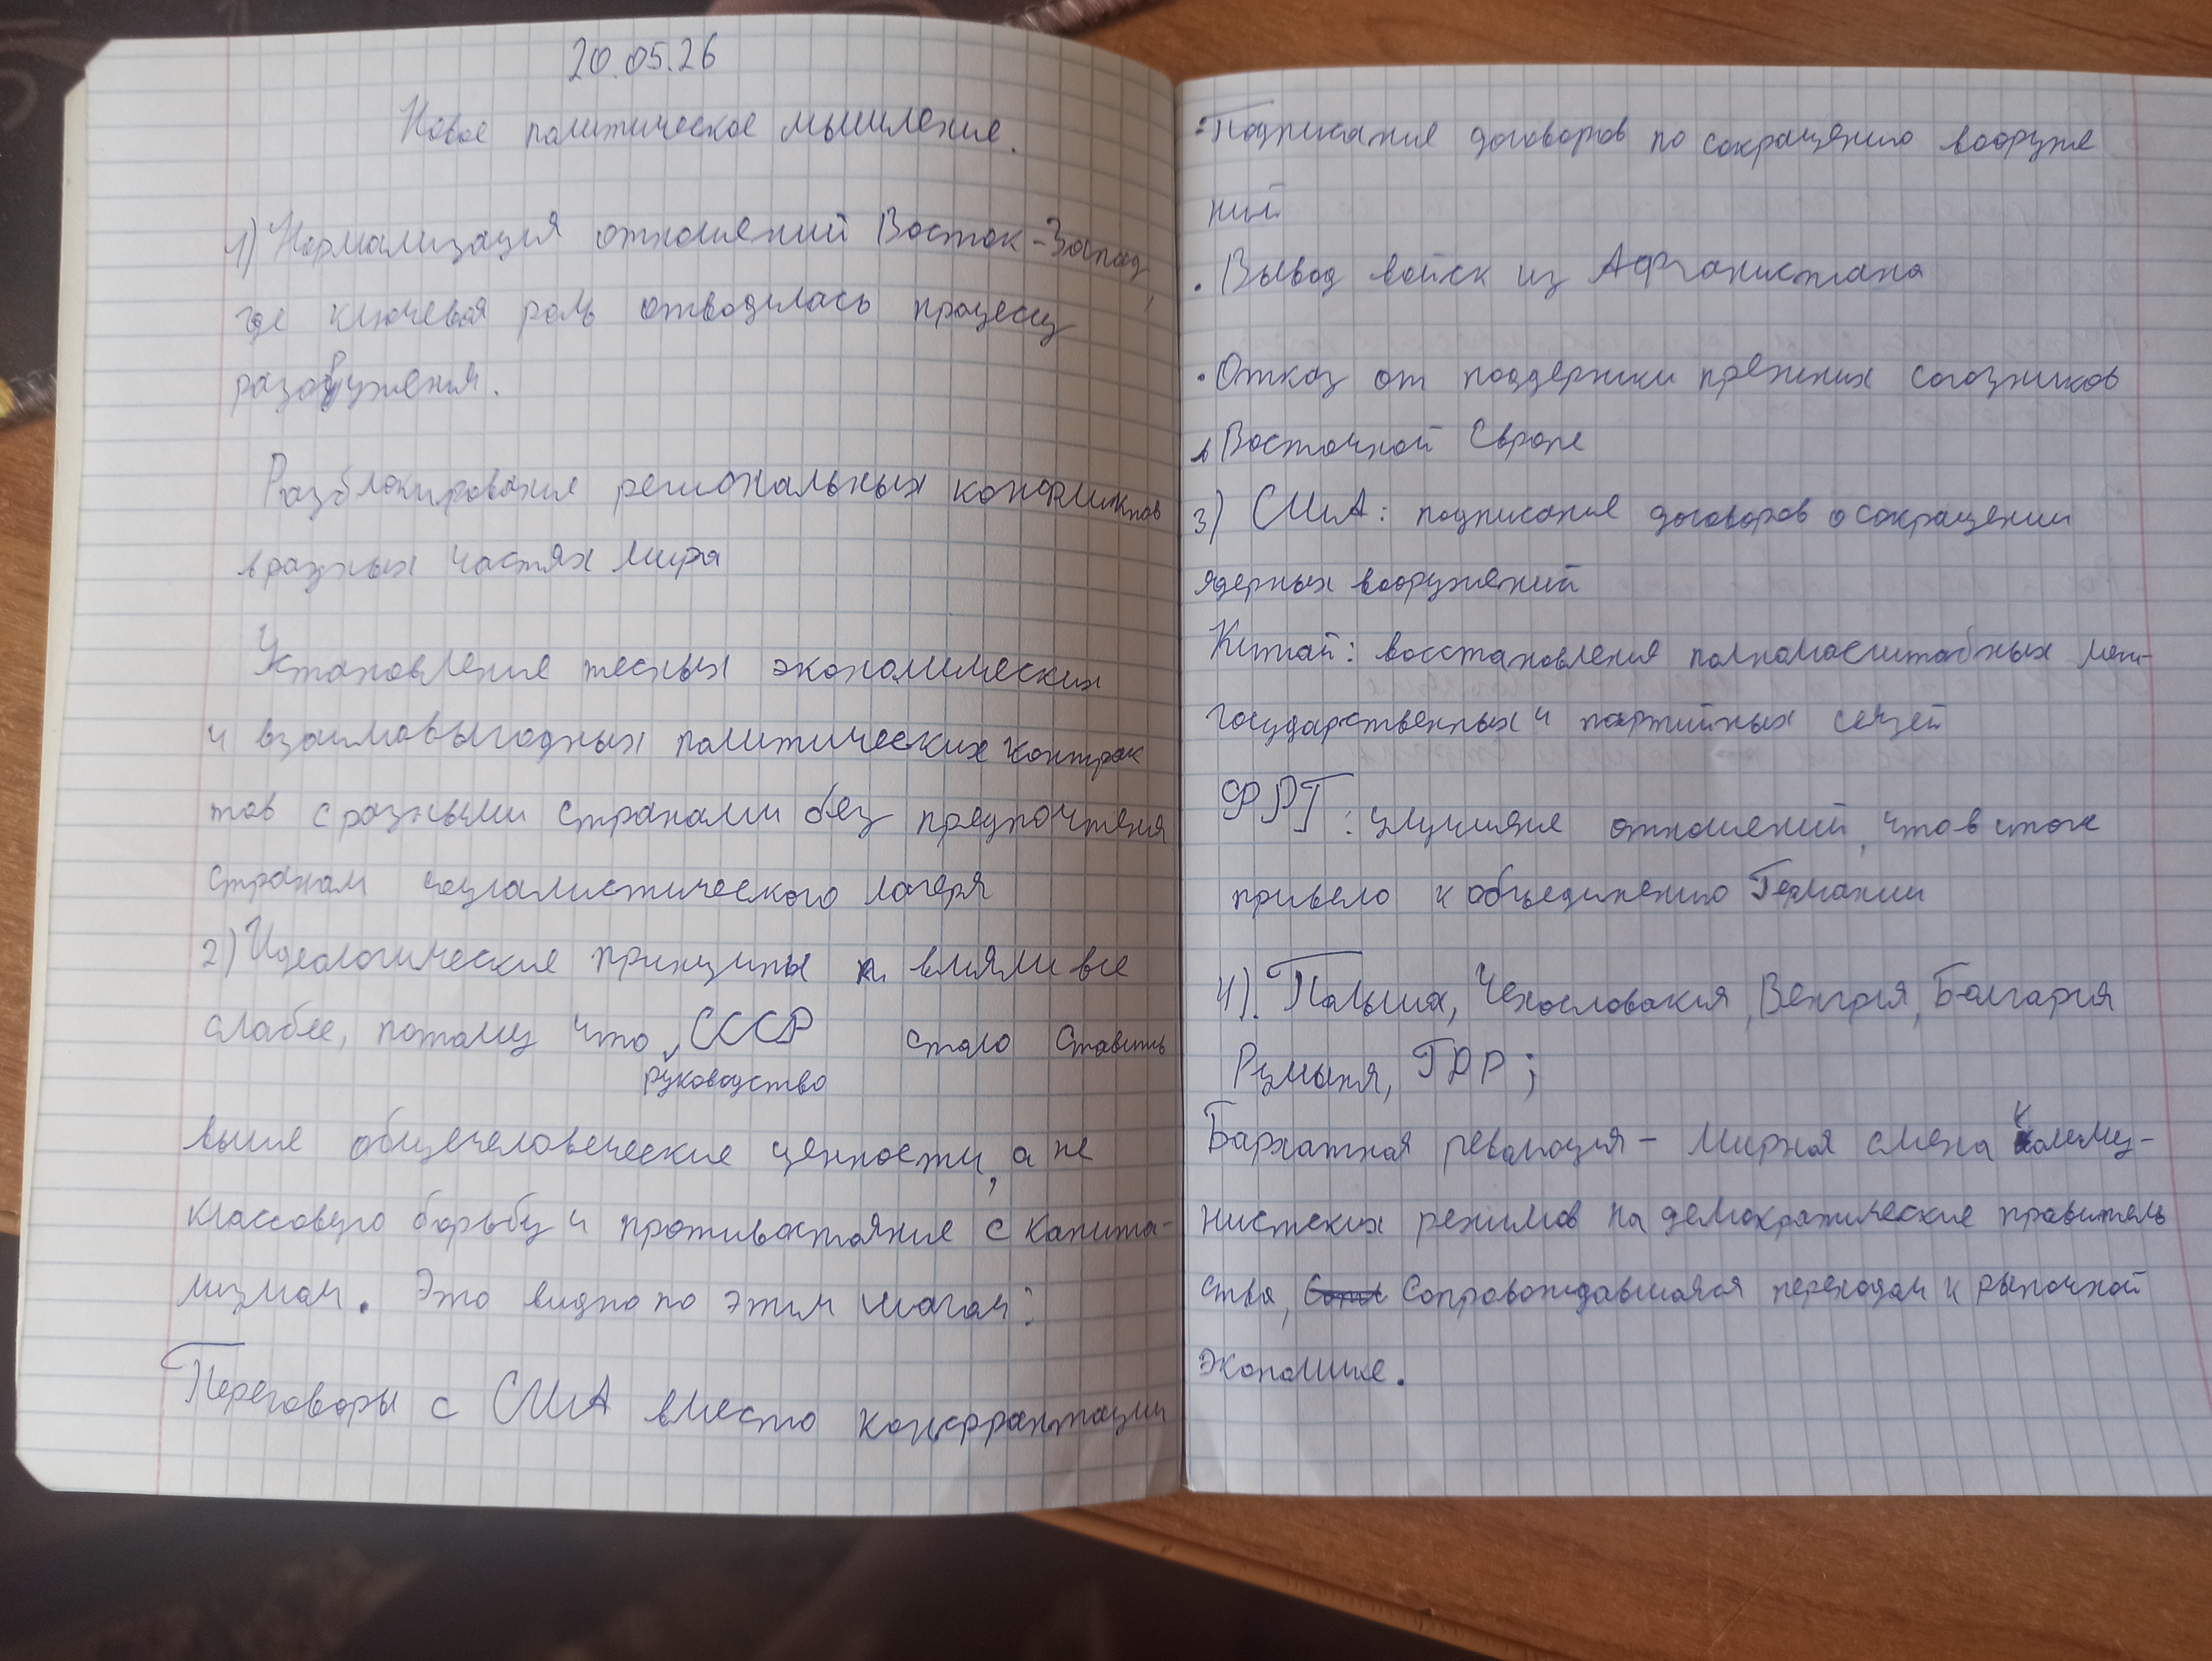 20.05.26
Новое политическое мышление.
1) Нормализация отношений Восток-Запад,
где ключевая роль отводилась процессу
разоружения.
Разблокирование региональных конфликтов
в разных частях мира
Установление тесных экономических
и взаимовыгодных политических контрак
тов с разными странами без предпочтения
странам социалистического лагеря
2) Идеологические принципы влияли все
слабее, потому что СССР стало ставить
руководство
выше общечеловеческие ценности, а не
классовую борьбу и противостояние с капита-
лизмом. Это видно по этим шагам:
Переговоры с США вместо конфронтации
• Подписание договоров по сокращению вооруже
ний
• Вывод войск из Афганистана
• Отказ от поддержки прежних союзников
в Восточной Европе
3) США: подписание договоров о сокращении
ядерных вооружений
Китай: восстановления полномасштабных меж-
государственных и партийных связей
ФРГ: улучшение отношений, что в итоге
привело к объединению Германии
4). Польша, Чехословакия, Венгрия, Болгария
Румыния, ГДР;
Бархатная революция - мирная смена комму-
нистских режимов на демократические правитель
ства, сопровождавшаяся переходом к рыночной
экономике.